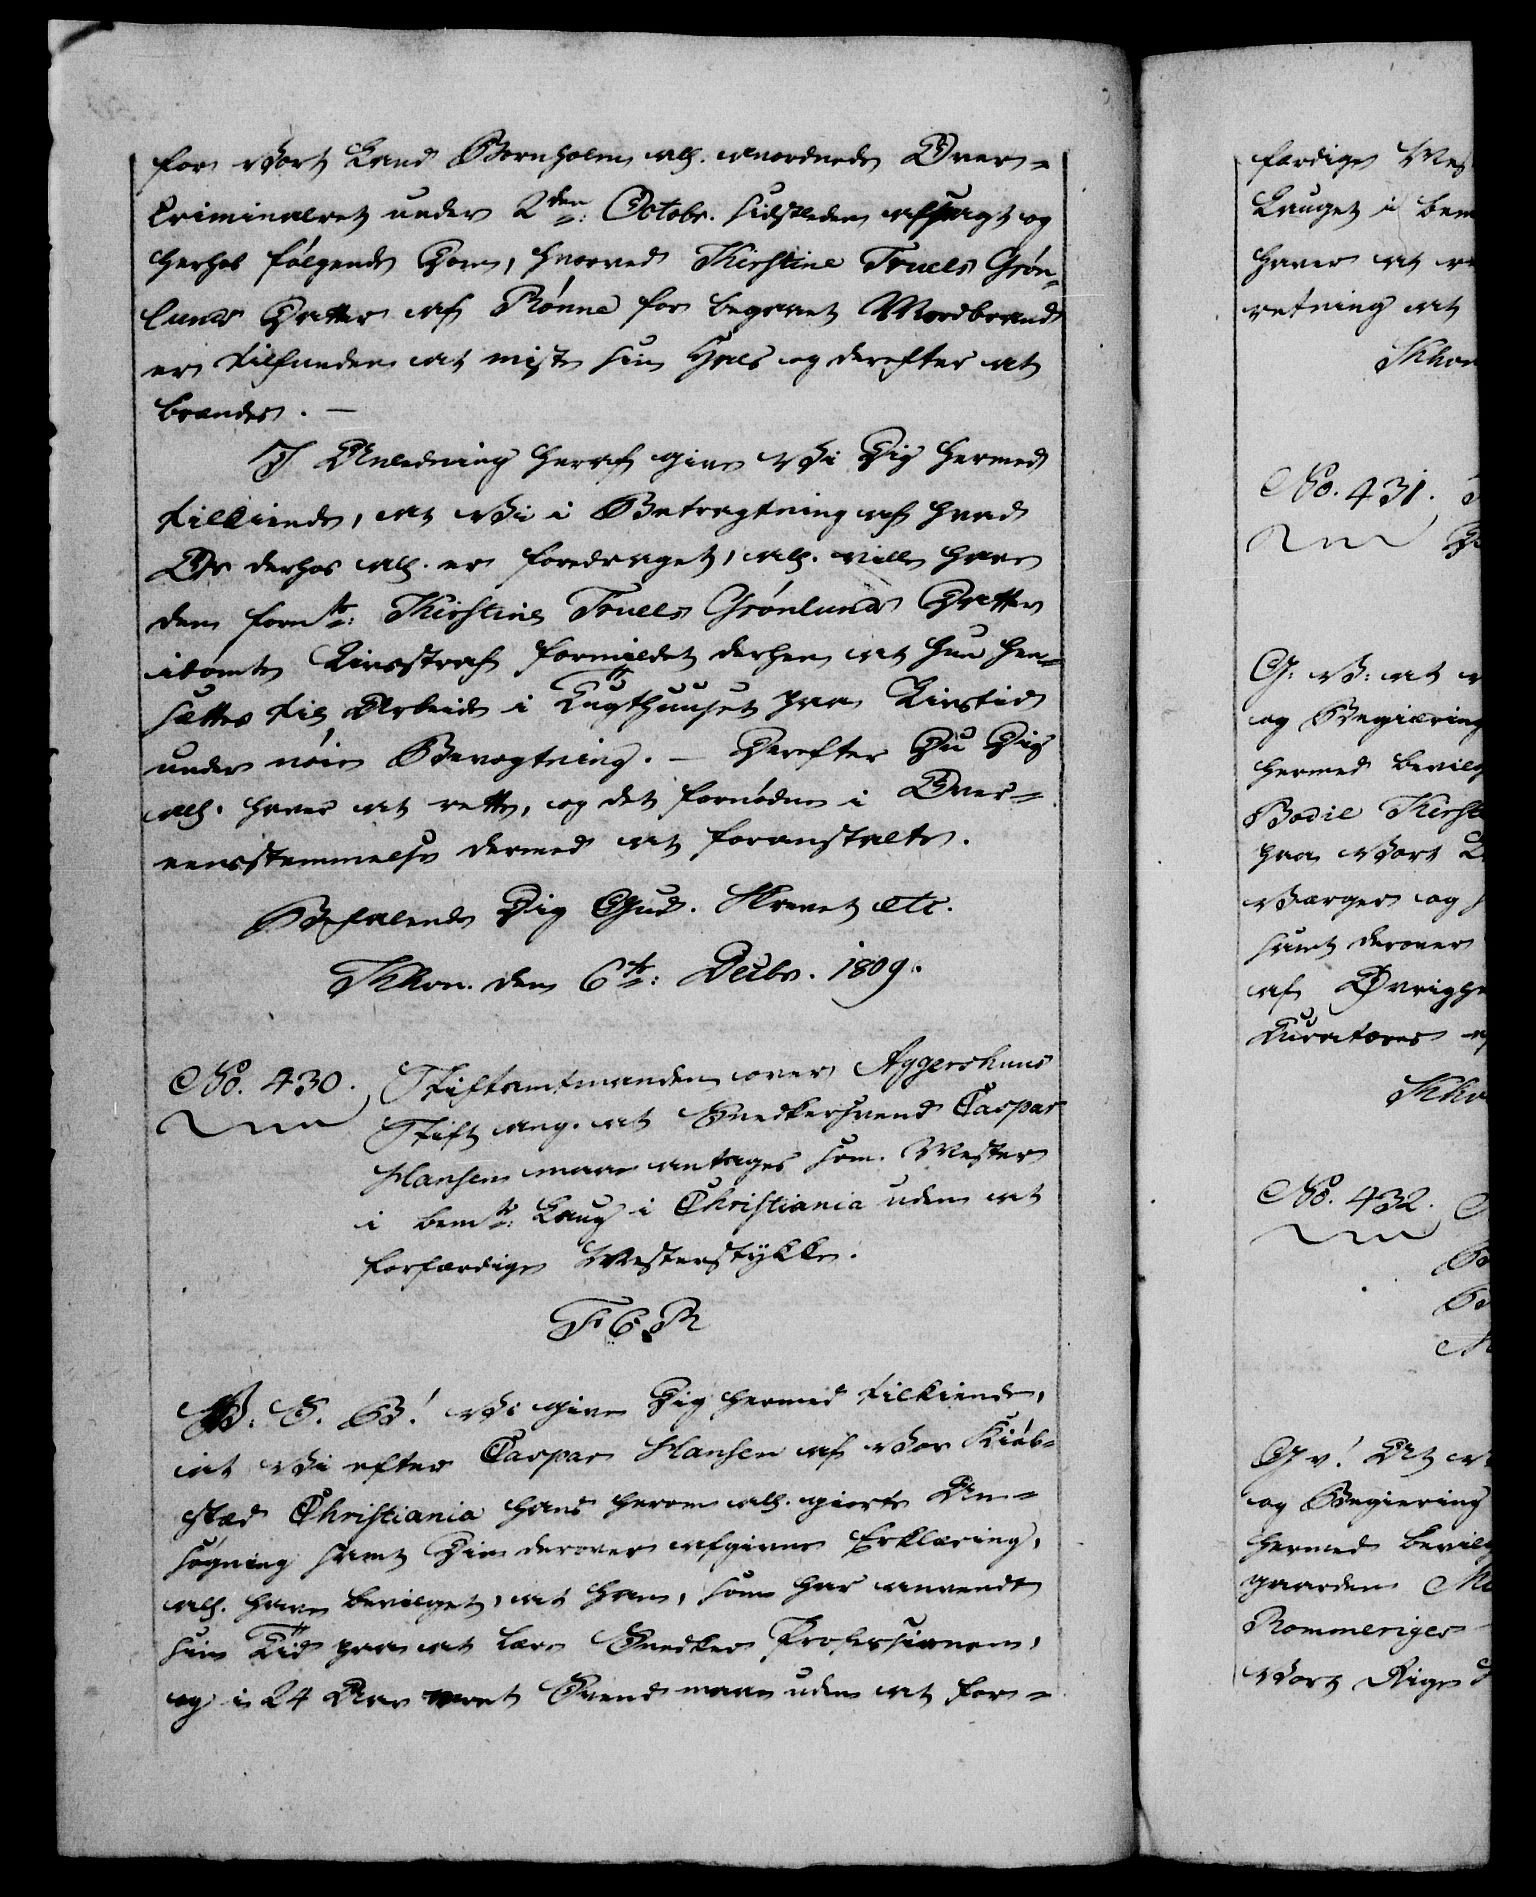 for Vort Land Bornholm all. anordnede Over-
Criminalret under 2den Octobr. sidstleden afsagt og
herhos følgende Dom, hvorved Kirstine Truels Grøn-
lunds Datter af Rønne for begaaet Mordbrand
er tilfunden at miste sin Hals og derefter at
brændes. —
I Anledning heraf give Vi Dig hermed
tilkiende, at Vi i Betragtning af hvad
Os derhos all. er foredraget, all. ville have
den formte: Kirstine Truels Grønlunds Datter
idømte Livsstraf formildet derhen at hun hen-
sættes til Arbeide i Tugthuuset paa Livstid
under nøie Bevogtning. — Derefter Du Dig
all. haver at rette, og det fornødne i Over-
eensstemmelse dermed at foranstalte.
Befalende Dig Gud. Skrevet etc.
Khvn. den 6te: Decbr. 1809.
No. 430. Stiftamtmanden over Aggershuus
Stift ang. at Snedkersvend Caspar
Hansen maae antages som Mester
i bemte: Laug i Christiania uden at
forfærdige Mesterstykke.
F 6 R
V. S. B! Vi give Dig hermed tilkiende,
at Vi efter Caspar Hansen af Vor Kiøb-
stæd Christiania hans herom all. giorte An-
søgning samt Din derover afgivne Erklæring,
all. have bevilget, at han, som har anvendt
sin Tid paa at lære Snedker Professionen,
og i 24 Aar været Svend maae uden at for-
færdige Mes
Lauget i bem
haver at
retning at
Khvn
No. 431.
G. V: at
og Begiæring
hermed bevilg
Bodil Kirst
paa Vort
Værger og
samt derover
af Øvrighe
Curatores
Khv
No. 432.
G v! At
og Begiering
hermed bevilg
gaarden
Rommeriges
Vort Rige